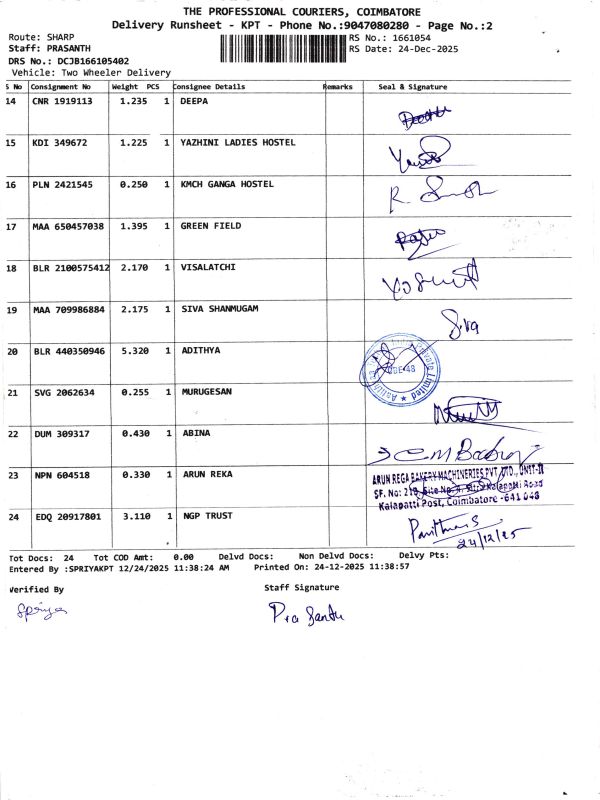 THE PROFESSIONAL COURIERS, COIMBATORE
Delivery Runsheet - KPT - Phone No.:9047080280 - Page No.:2
Route: SHARP
RS No.: 1661054
Staff: PRASANTH
RS Date: 24-Dec-2025
DRS No.: DCJB166105402
Vehicle: Two Wheeler Delivery
S No Consignment No Weight PCS Consignee Details Remarks Seal & Signature
14 CNR 1919113 1.235 1 DEEPA
15 KDI 349672 1.225 1 YAZHINI LADIES HOSTEL
16 PLN 2421545 0.250 1 KMCH GANGA HOSTEL
17 MAA 650457038 1.395 1 GREEN FIELD
18 BLR 2100575412 2.170 1 VISALATCHI
19 MAA 709986884 2.175 1 SIVA SHANMUGAM
Siva
20 BLR 440350946 5.320 1 ADITHYA
Private Limited
21 SVG 2062634 0.255 1 MURUGESAN
22 DUM 309317 0.430 1 ABINA
23 NPN 604518 0.330 1 ARUN REKA
ARUN REGA BAKERY MACHINERIES PVT. LTD., UNIT-II
SF. No: Site No. Kalapatti Road
Kalapatti Post, Coimbatore - 641 048
24 EDQ 20917801 3.110 1 NGP TRUST
24/12/25
Tot Docs: 24 Tot COD Amt: 0.00 Delvd Docs: Non Delvd Docs: Delvy Pts:
Entered By :SPRIYAKPT 12/24/2025 11:38:24 AM Printed On: 24-12-2025 11:38:57
Verified By
Staff Signature
Spriya
Prasanth